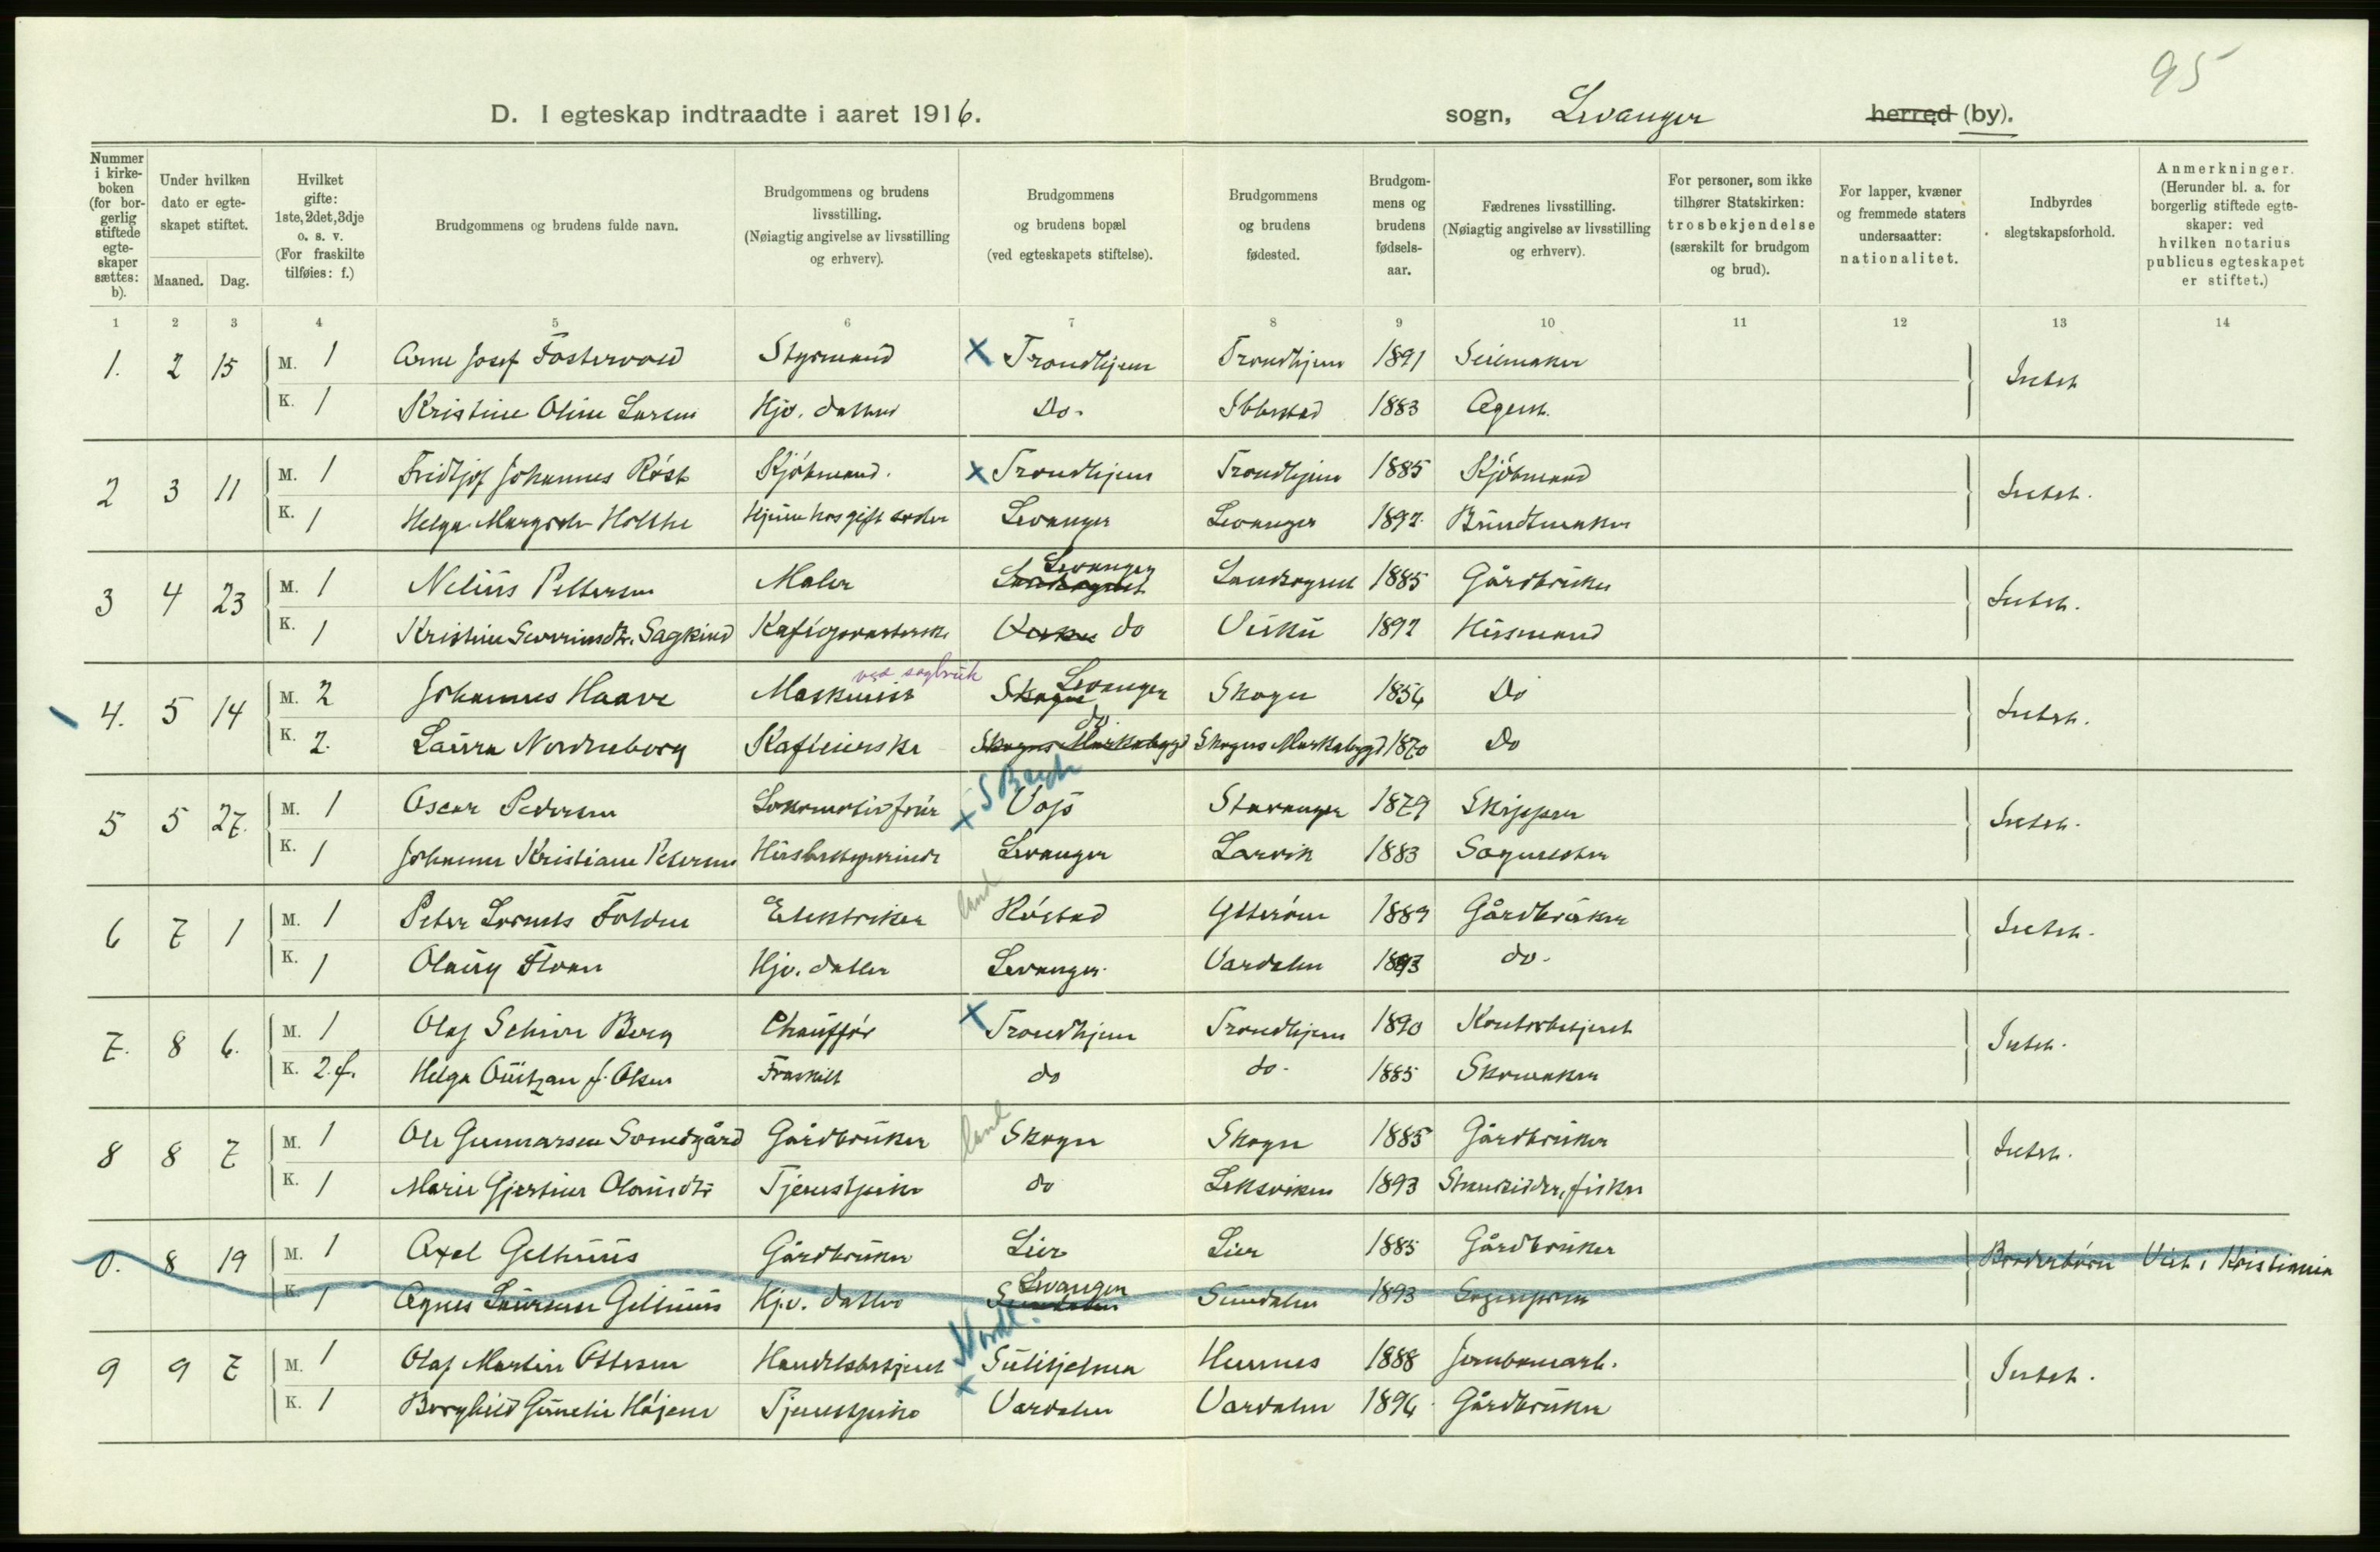 95
D. I egteskap indtraadte i aaret 1916. sogn, Levanger herred (by).
Nummer i kirkeboken (for borgerlig stiftede egteskaper sættes: b).
Under hvilken dato er egteskapet stiftet.
Maaned. Dag.
Hvilket gifte: 1ste, 2det, 3dje o. s. v. (For fraskilte tilføies: f.)
Brudgommens og brudens fulde navn.
Brudgommens og brudens livsstilling. (Nøiagtig angivelse av livsstilling og erhverv).
Brudgommens og brudens bopæl (ved egteskapets stiftelse).
Brudgommens og brudens fødested.
Brudgommens og brudens fødselsaar.
Fædrenes livsstilling. (Nøiagtig angivelse av livsstilling og erhverv).
For personer, som ikke tilhører Statskirken: trosbekjendelse (særskilt for brudgom og brud).
For lapper, kvæner og fremmede staters undersaatter: nationalitet.
Indbyrdes slegtskapsforhold.
Anmerkninger. (Herunder bl. a. for borgerlig stiftede egteskaper: ved hvilken notarius publicus egteskapet er stiftet.)
1 2 3 4 5 6 7 8 9 10 11 12 13 14
1. 2 15 M. 1 Arne Josef Fostervold Styrmand X Trondhjem Trondhjem 1891 Seilmaker Intet
K. 1 Kristine Oline Larsen Hjv. datter Do. Ibbestad 1883 Agent.
2 3 11 M. 1 Fridtjof Johannes Röst Kjöbmand. X Trondhjem Trondhjem 1885 Kjöbmand Intet.
K. 1 Helga Margrete Holthe Hjemme hos gift søster Levanger Levanger 1892 Bundtmaker
3 4 23 M. 1 Nelius Pettersen Maler Landsognet Levanger Landsognet 1885 Gårdbruker Intet.
K. 1 Kristine Sevrinsdtr. Sagkind Kafeopvarterske Vuku do Vuku 1892 Husmand
4. 5 14 M. 2 Johannes Haave Maskinist ved sagbruk Skogn Levanger Skogn 1854 Do Intet.
K. 2. Laura Nordneborg Kafeeierske Skogns Markabygd do. Skogns Markabygd 1870 Do
5 5 27. M. 1 Oscar Pedersen Lokomotivfører X Voss Stavanger 1879 Skipper Intet.
K. 1 Johanne Kristiane Petersen Husbestyrerinde Levanger Larvik 1883 Sagmester
6 7 1 M. 1 Peter Lornts Folden Elektriker land Röstad Ytterøen 1889 Gårdbruker Intet.
K. 1 Olaug Floan Hjv. datter Levanger. Værdalen 1893 do.
7. 8 6. M. 1 Olaf Schive Berg Chauffør X Trondhjem Trondhjem 1890 Kontorbetjent Intet.
K. 2. f. Helga f. Olsen Fraskilt do do. 1885 Skomaker
8 8 7 M. 1 Ole Gunnarsen Gårdbruker land Skogn Skogn 1885 Gårdbruker Intet.
K. 1 Marie Gjertine Tjenestpike do Leksviken 1893 Strandsidder, fisker
0. 8 19 M. 1 Axel Gilhuus Gårdbruker Lier Lier 1885 Gårdbruker Broderbørn Viet i Kristiania
K. 1 Agnes Laurense Gilhuus Hj.v. datter Sundalen Levanger Sundalen 1893
9 9 7 M. 1 Olaf Martin Ottesen Handelsbetjent Nordl. X Sulitjelma Hemnes 1888 Jernbanearb. Intet.
K. 1 Borghild Højem Tjenestpike Værdalen Værdalen 1894 Gårdbruker